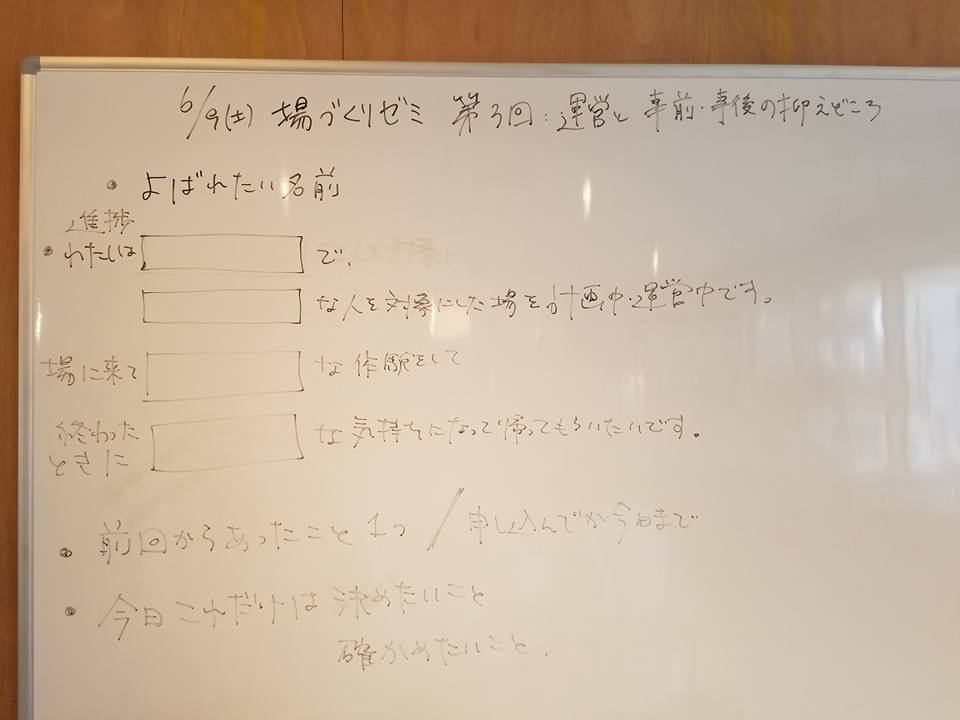 6/9(土) 場づくりゼミ 第3回:運営と 事前・事後の抑えどころ
• よばれたい名前
進捗
• わたしは で、
な人を対象にした場を計画中・運営中です。
場に来て な体験をして
終わった
ときに な気持ちになって帰ってもらいたいです。
• 前回からあったこと 1つ / 申し込んでから今日まで
• 今日これだけは 決めたいこと
確かめたいこと.